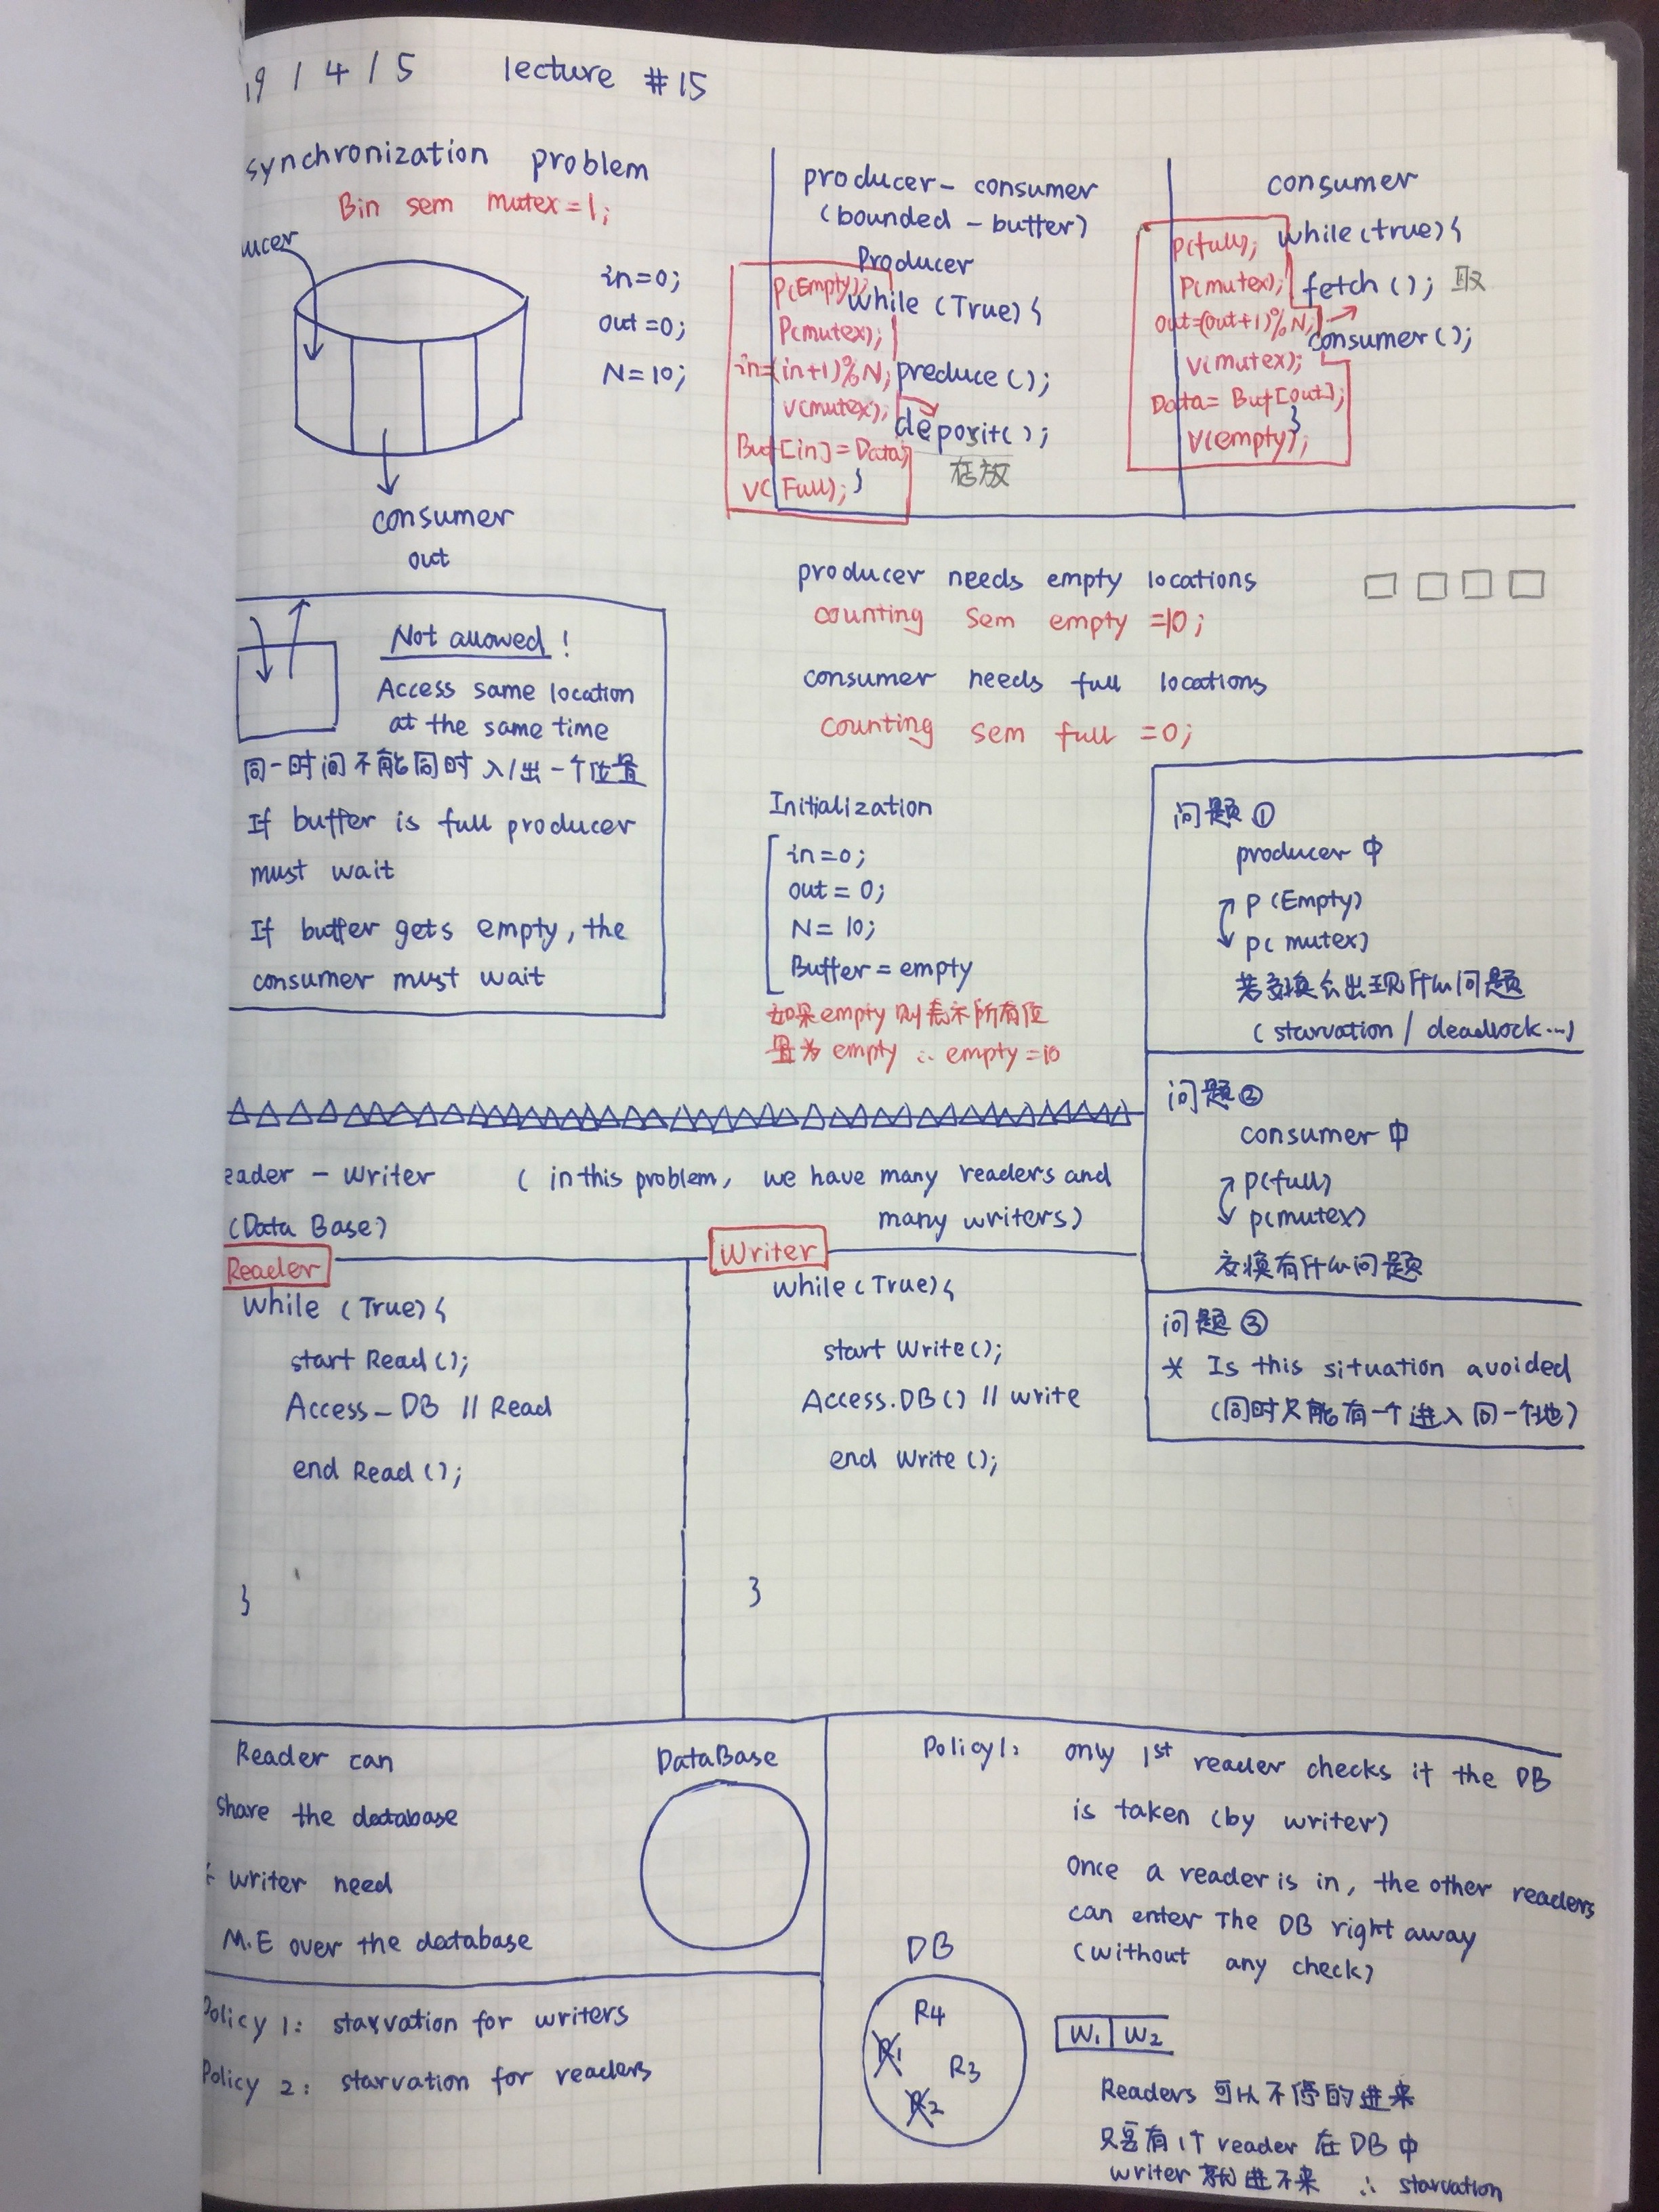 19 / 4 / 5 lecture #15
synchronization problem
Bin sem mutex=1;
ucer
in=0;
out=0;
N=10;
consumer
out
producer- consumer
(bounded - butter)
Producer
while (True){
preduce();
deposit();
存放
}
P(Empty);
P(mutex);
in=(in+1)%N;
V(mutex);
Buf[in]=Data;
V(Full);
consumer
while(true){
fetch(); 取
consumer();
}
P(full);
P(mutex);
out=(out+1)%N;
V(mutex);
Data= Buf[out];
V(empty);
Not allowed!
Access same location
at the same time
同一时间不能同时入/出一个位置
If buffer is full producer
must wait
If buffer gets empty, the
consumer must wait
producer needs empty locations
counting sem empty =10;
consumer needs full locations
counting sem full =0;
Initialization
in=0;
out=0;
N=10;
Buffer = empty
如果empty则表示所有位
置为empty ∴ empty=10
问题①
producer 中
P(Empty)
P(mutex)
若交换会出现什么问题
(starvation / deadlock...)
问题②
consumer 中
P(full)
P(mutex)
交换有什么问题
问题③
* Is this situation avoided
(同时只能有一个进入同一个地)
eader - writer (in this problem, we have many readers and
many writers)
(Data Base)
Reader
while (True){
start Read();
Access_DB // Read
end Read();
}
Writer
while(True){
start Write();
Access.DB() // write
end Write();
}
Reader can
share the database
writer need
M.E over the database
DataBase
Policy 1: starvation for writers
Policy 2: starvation for readers
Policy1: only 1st reader checks if the DB
is taken (by writer)
Once a reader is in, the other readers
can enter The DB right away
(without any check)
DB
R4
R1
R3
R2
W1 W2
Readers 可以不停的进来
只要有1个 reader 在DB中
writer 就进不来 ∴ starvation